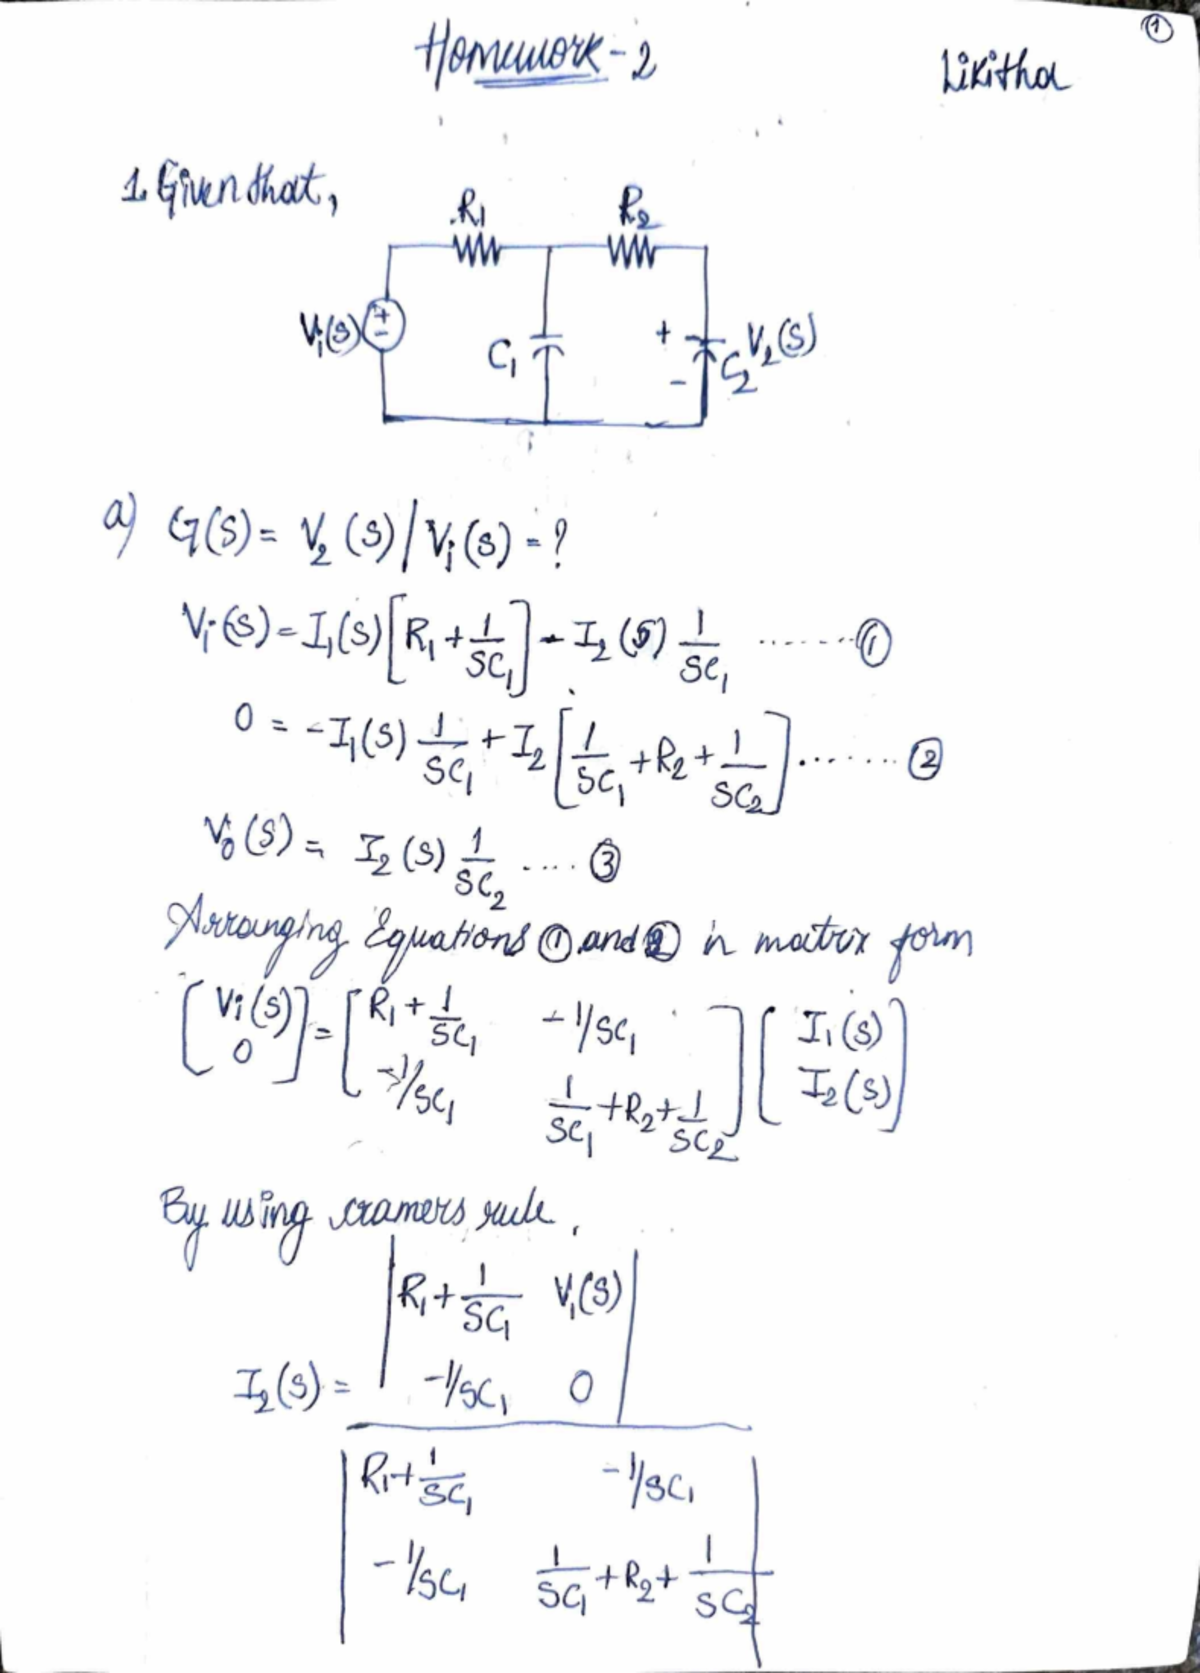 ①
Homework-2
Likitha
1. Given that,
R₁ R₂
Vi(s) + - C₁ + - C₂ V₂(s)
a) G(s) = V₂(s)/Vi(s) = ?
Vi(s) = I₁(s)[R₁ + 1/SC₁] - I₂(s) 1/SC₁ ........①
0 = -I₁(s) 1/SC₁ + I₂[1/SC₁ + R₂ + 1/SC₂] ........②
V₀(s) = I₂(s) 1/SC₂ ....③
Arranging Equations ① and ② in matrix form
[Vi(s) 0] = [R₁ + 1/SC₁ -1/SC₁ -1/SC₁ 1/SC₁ + R₂ + 1/SC₂] [I₁(s) I₂(s)]
By using cramers rule,
I₂(s) = |R₁ + 1/SC₁ Vi(s) -1/SC₁ 0|
|R₁ + 1/SC₁ -1/SC₁
-1/SC₁ 1/SC₁ + R₂ + 1/SC₂|